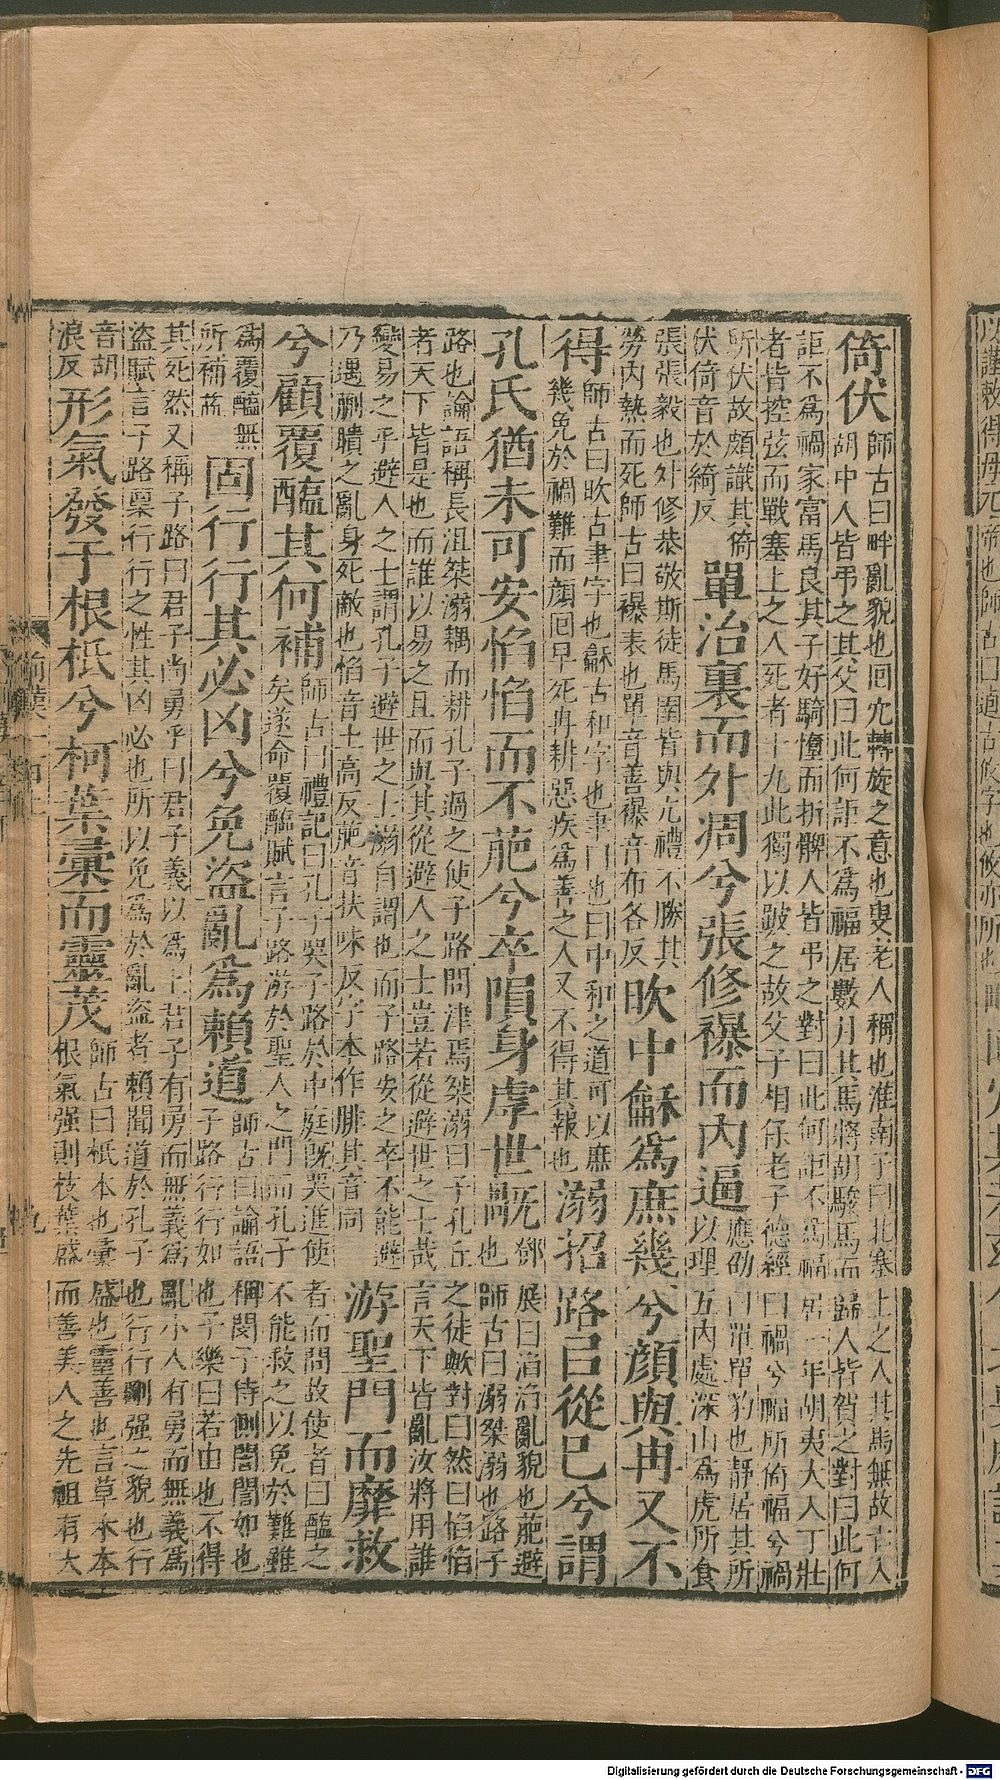 倚伏師古曰畔亂貌也回宂轉旋之意也叟老人稱也淮南子曰北塞上之人其馬無故亡入
胡中人皆弔之其父曰此何詎不爲福居數月其馬將胡駿馬而歸人皆賀之對曰此何
詎不爲禍家富馬良其子好騎墮而折髀人皆弔之對曰此何詎不爲福居一年胡夷大入丁壯
者皆控弦而戰塞上之人死者十九此獨以跛之故父子相保老子德經曰禍兮福所倚福兮禍
所伏故頗識其倚
伏倚音於綺反
單治裏而外凋兮張修襮而內逼應劭曰單單豹也靜居其所
以理五內處深山爲虎所食
張張毅也外修恭敬斯徒馬圉皆與亢禮不勝其
勞內熱而死師古曰襮表也單音善襮音布各反
欥中龢爲庶幾兮顏與冉又不
得師古曰欥古聿字也龢古和字也聿曰也曰中和之道可以庶
幾免於禍難而顏回早死冉耕惡疾爲善之人又不得其報也
溺招路㠯從己兮謂
孔氏猶未可安慆慆而不萉兮卒隕身虖世旤鄧展曰滔滔亂貌也萉避
也師古曰溺桀溺也路子
路也論語稱長沮桀溺耦而耕孔子過之使子路問津焉桀溺曰子孔丘之徒歟對曰然曰慆慆
者天下皆是也而誰以易之且而與其從避人之士豈若從避世之士哉言天下皆亂汝將用誰
變易之乎避人之士謂孔子避世之士溺自謂也而子路安之卒不能避
乃遇蒯聵之亂身死敵也慆音土高反萉音扶味反字本作腓其音同
游聖門而靡救
兮顧覆醢其何補師古曰禮記曰孔子哭子路於中庭旣哭進使者而問故使者曰醢之
矣遂命覆醢賦言子路游於聖人之門而孔子不能救之以免於難雖
爲覆醢無
所補益
固行行其必凶兮免盜亂爲賴道師古曰論語稱閔子侍側誾誾如也
子路行行如也子樂曰若由也不得
其死然又稱子路曰君子尚勇乎曰君子義以爲上君子有勇而無義爲亂小人有勇而無義爲
盜賦言子路稟行行之性其凶必也所以免爲於亂盜者賴聞道於孔子也行行剛强之貌也行
音胡
浪反
形氣發于根柢兮柯葉彙而靈茂師古曰柢本也彙盛也靈善也言草木本
根氣强則枝葉盛而善美人之先祖有大
前漢一百上
九
Digitalisierung gefördert durch die Deutsche Forschungsgemeinschaft - DFG